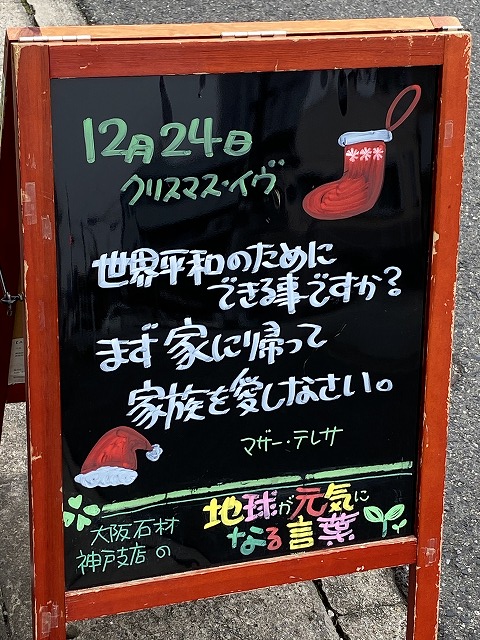 12月24日
クリスマス・イヴ
世界平和のために
できる事ですか?
まず家に帰って
家族を愛しなさい。
マザー・テレサ
大阪石材
神戸支店の
地球が元気に
なる言葉